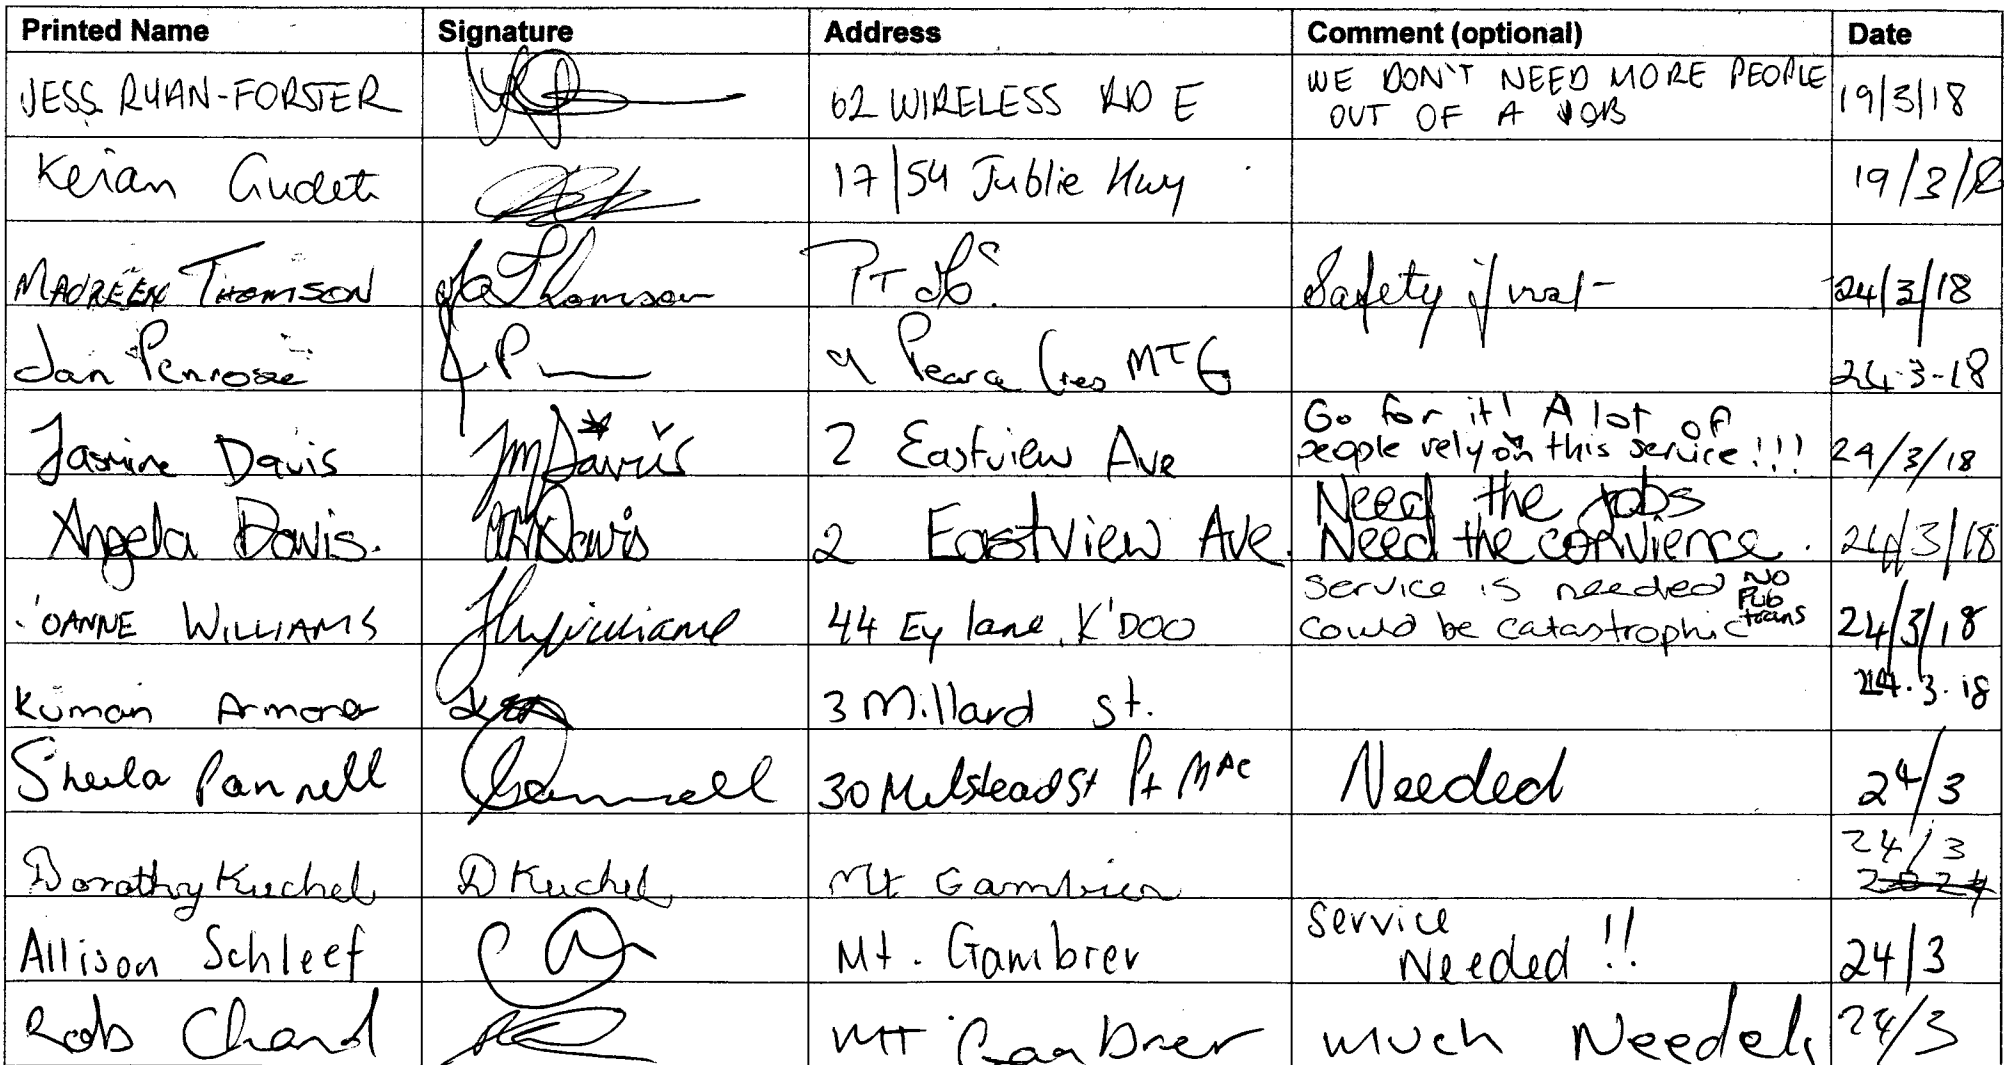 Printed Name Signature Address Comment (optional) Date
JESS RYAN-FORSTER 62 WIRELESS RD E WE DON'T NEED MORE PEOPLE 19/3/18
OUT OF A JOB
Keian 17/54 Jublie Hwy 19/3/18
MAUREEN THOMSON Thomson PT 24/3/18
Safety
Jan Penrose 9 Pearce Cres MT G 24-3-18
Jasmine Davis JMDavis 2 Eastview Ave Go for it! A lot of 24/3/18
people rely on this service!!!
Angela Davis. AMDavis 2 Eastview Ave. Need the jobs 24/3/18
Need the convience.
JOANNE WILLIAMS 44 Ey lane, K'DOO Service is needed NO 24/3/18
Pub
could be catastrophic trans
Kuman 3 Millard St. 24.3.18
Sheila Pannell Pannell 30 Milstead St Pt Mac Needed 24/3
Dorothy Kuchel D Kuchel Mt Gambier 24/3
Allison Schleef Mt. Gambier Service 24/3
Needed!!
Rob Chand Mt much Needed 24/3